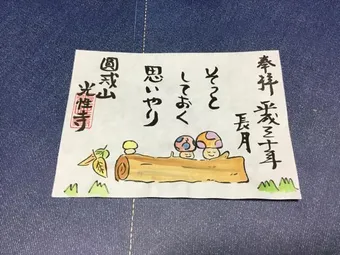 奉拝 平成三十年
長月
そっと
しておく
思いやり
圓戎山
光性寺